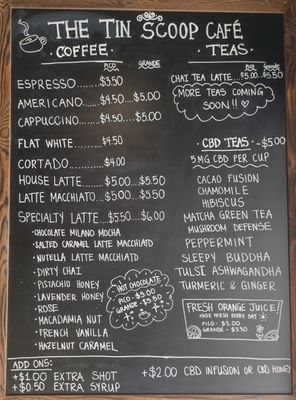 THE TIN SCOOP CAFÉ
COFFEE
PICO GRANDE
ESPRESSO.......$3.50
AMERICANO....$4.50...$5.00
CAPPUCCINO....$4.50...$5.00
FLAT WHITE.....$4.50
CORTADO........$4.00
HOUSE LATTE....$5.00...$5.50
LATTE MACCHIATO..$5.00...$5.50
SPECIALTY LATTE...$5.50...$6.00
• CHOCOLATE MILANO MOCHA
• SALTED CARAMEL LATTE MACCHIATO
• NUTELLA LATTE MACCHIATO
• DIRTY CHAI
• PISTACHIO HONEY
• LAVENDER HONEY
• ROSE
• MACADAMIA NUT
• FRENCH VANILLA
• HAZELNUT CARAMEL
HOT CHOCOLATE
PICO - $5.00
GRANDE - $5.50
TEAS
PICO GRANDE
CHAI TEA LATTE...$5.00...$5.50
MORE TEAS COMING
SOON!!
CBD TEAS - $5.00
5MG CBD PER CUP
CACAO FUSION
CHAMOMILE
HIBISCUS
MATCHA GREEN TEA
MUSHROOM DEFENSE
PEPPERMINT
SLEEPY BUDDHA
TULSI ASHWAGANDHA
TURMERIC & GINGER
FRESH ORANGE JUICE!
MADE FRESH EVERY DAY
PICO - $5.00
GRANDE - $5.50
ADD ONS:
+$1.00 EXTRA SHOT
+$0.50 EXTRA SYRUP
+$2.00 CBD INFUSION OR CBD HONEY